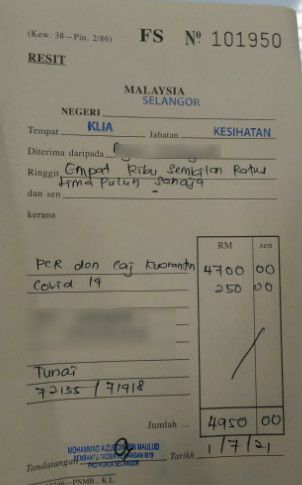 (Kew. 38—Pin. 2/86) FS Nº 101950
RESIT
MALAYSIA
NEGERI SELANGOR
Tempat KLIA Jabatan KESIHATAN
Diterima daripada
Ringgit Empat Ribu Sembilan Ratus
Lima Puluh Sahaja
dan sen -
kerana
RM sen
PCR dan Caj Kuarantin 4700 00
Covid 19 250 00
Tunai
72155 / 71918
Jumlah ... 4950 00
MOHAMMAD BIN MAULUD
Tandatangan Tarikh 1/7/21
PNMB., K.L.